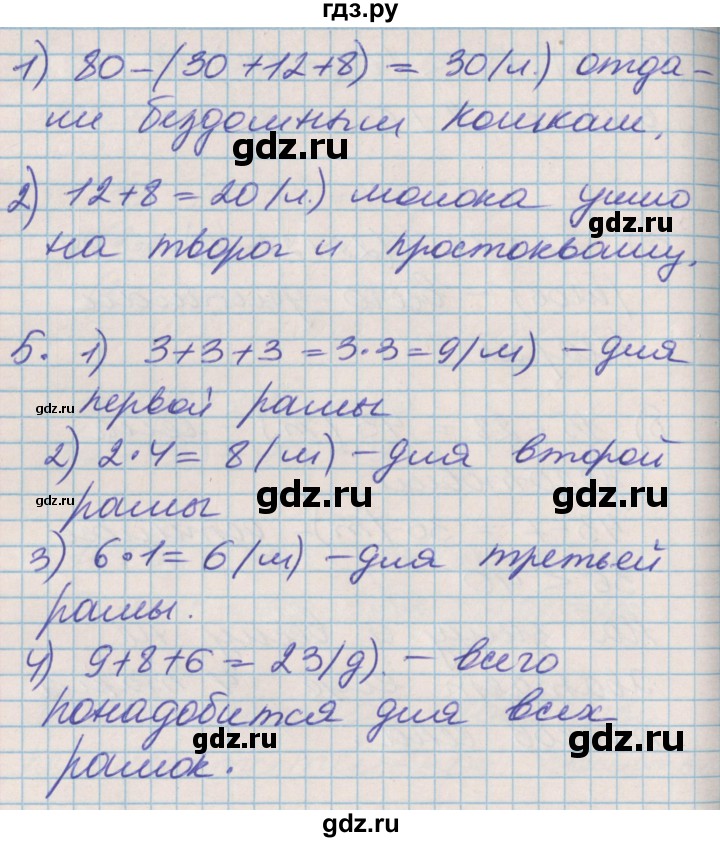 гдз.ру
1) 80-(30+12+8) = 30(л.) отда-
ли бездомным кошкам.
gdz.ru
2) 12+8=20(л.) молока ушло
gdz.ru
на творог и простоквашу.
5. 1) 3+3+3=3·3=9(м) -для
gdz.ru
первой рамы
2) 2·4= 8(м) -для второй
gdz.ru
gdz.ru
gdz.ru
рамы
3) 6·1=6(м) -для третьей
рамы.
4) 9+8+6=23(д). - всего
понадобится для всех
gdz.ru
gdz.ru
рамок.
gdz.ru